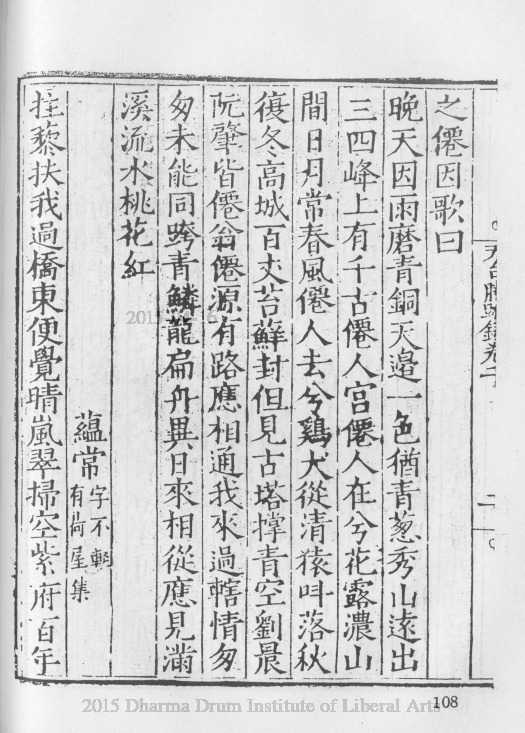 天台勝蹟錄卷二
二
之僊因歌曰
晚天因雨磨青銅天邊一色猶青葱秀山遠出
三四峰上有千古僊人宮僊人在兮花露濃山
間日月常春風僊人去兮鷄犬從清猿呌落秋
復冬高城百丈苔蘚封但見古塔撑青空劉晨
阮肇皆僊翁僊源有路應相通我來過轄情匆
匆未能同跨青鱗龍扁舟異日來相從應見滿
溪流水桃花紅
蘊常
字不輕
有荷屋集
拄藜扶我過橋東便覺晴嵐翠掃空紫府百年
2015 Dharma Drum Institute of Liberal Arts
108